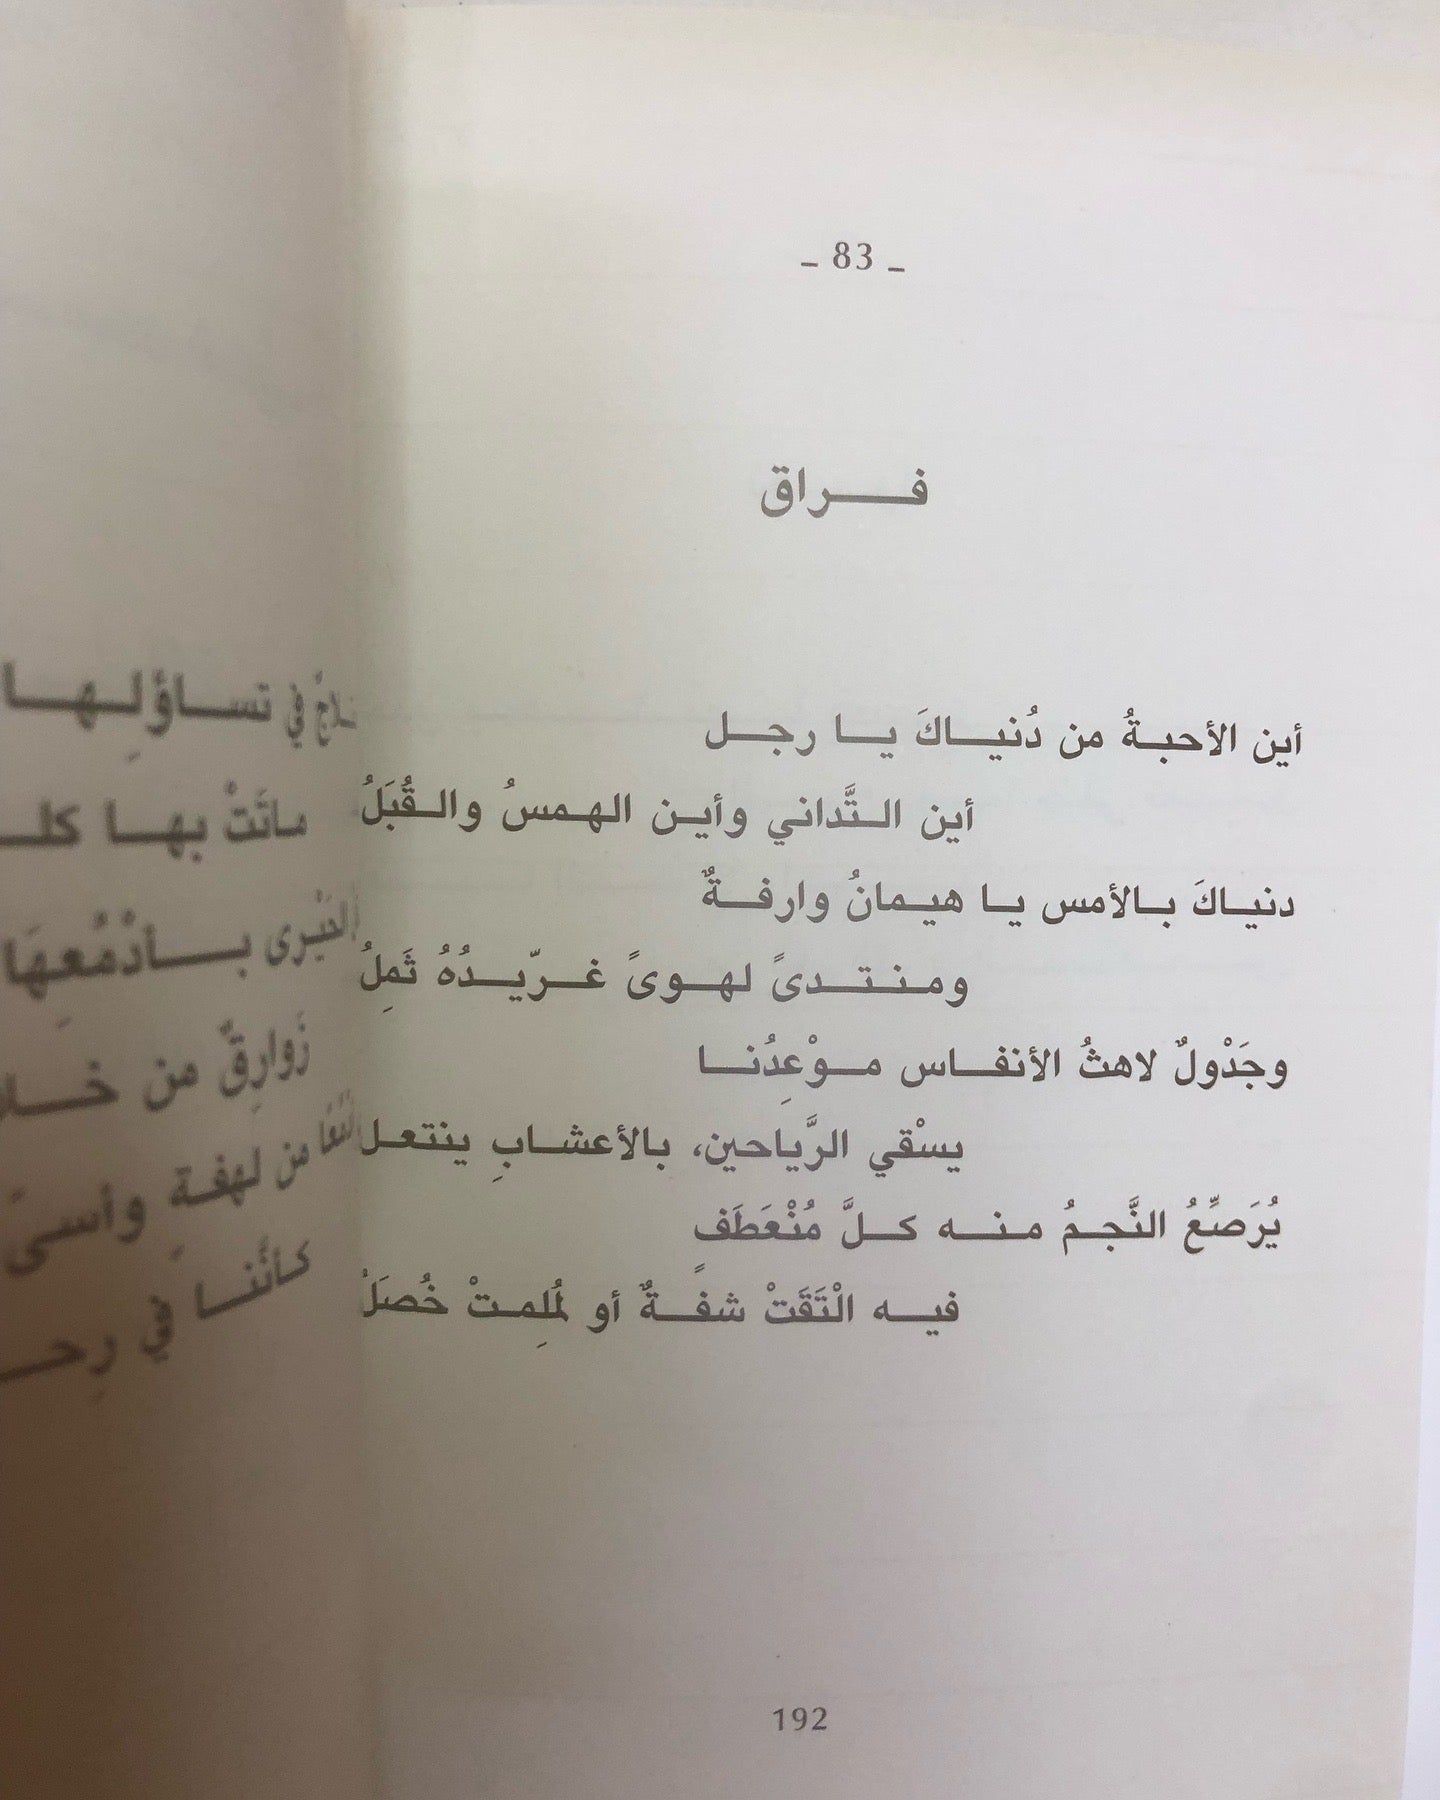 ـ 83 ـ
فـراق
أين الأحبةُ من دُنياكَ يا رجل
أين التَّداني وأين الهمسُ والقُبَلُ
دنياكَ بالأمس يا هيمانُ وارفةٌ
ومنتدىً لهوىً غرّيدُهُ ثَمِلُ
وجَدْولٌ لاهثُ الأنفاس موْعِدُنا
يسْقي الرَّياحين، بالأعشابِ ينتعل
يُرَصِّعُ النَّجمُ منه كلَّ مُنْعَطَفٍ
فيه الْتَقَتْ شفةٌ أو لُملِمتْ خُصَلُ
192
في تساؤلِها
ماتَتْ بها
الحَيْرى بأدْمُعِهَا
زَوارِقٌ من
من لهفةٍ وأسىً
كأنَّنا في